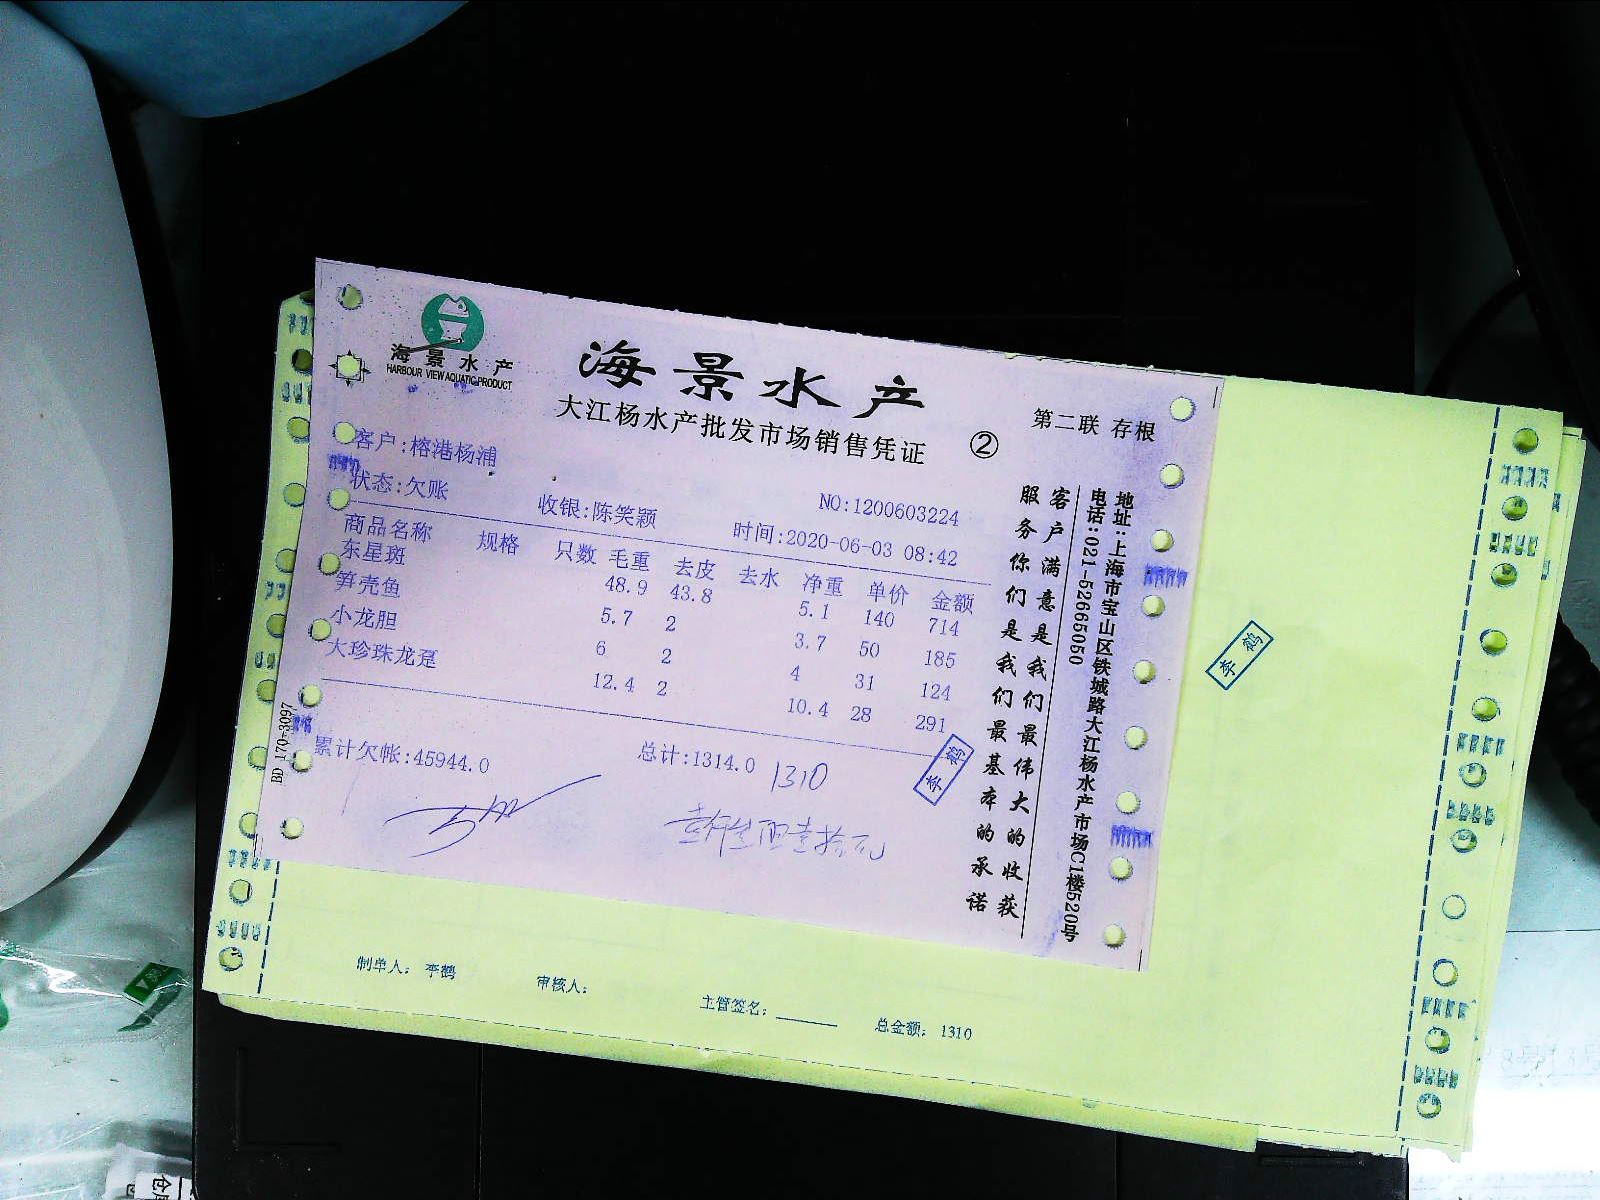 海景水产
HARBOUR VIEW AQUATIC PRODUCT
海景水产
大江杨水产批发市场销售凭证
② 第二联 存根
客户:榕港杨浦
状态:欠账 收银:陈笑颖 NO:1200603224
时间:2020-06-03 08:42
商品名称 规格 只数 毛重 去皮 去水 净重 单价 金额
东星斑 48.9 43.8 5.1 140 714
笋壳鱼 5.7 2 3.7 50 185
小龙胆 6 2 4 31 124
大珍珠龙趸 12.4 2 10.4 28 291
累计欠帐:45944.0 总计:1314.0 1310
壹仟叁佰壹拾元
李鹤
客户满意是我们最伟大的收获
服务你们是我们最基本的承诺
地址:上海市宝山区铁城路大江杨水产市场C1楼520号
电话:021-52665050
BD 170-3097
李鹤
制单人: 李鹤 审核人: 主管签名: 总金额: 1310